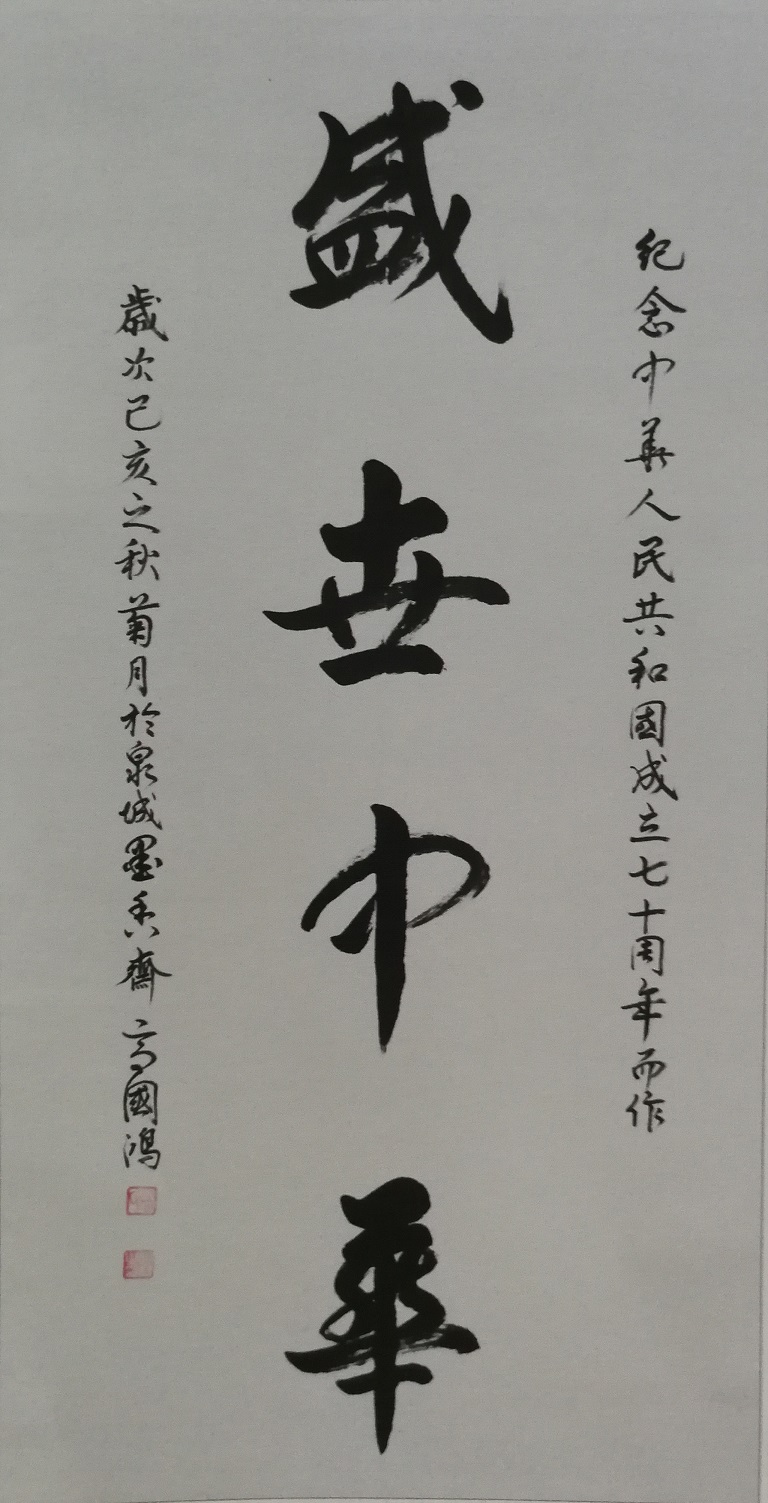 紀念中華人民共和國成立七十周年而作
盛世中華
歲次己亥之秋菊月於泉城墨香齋 高國鴻